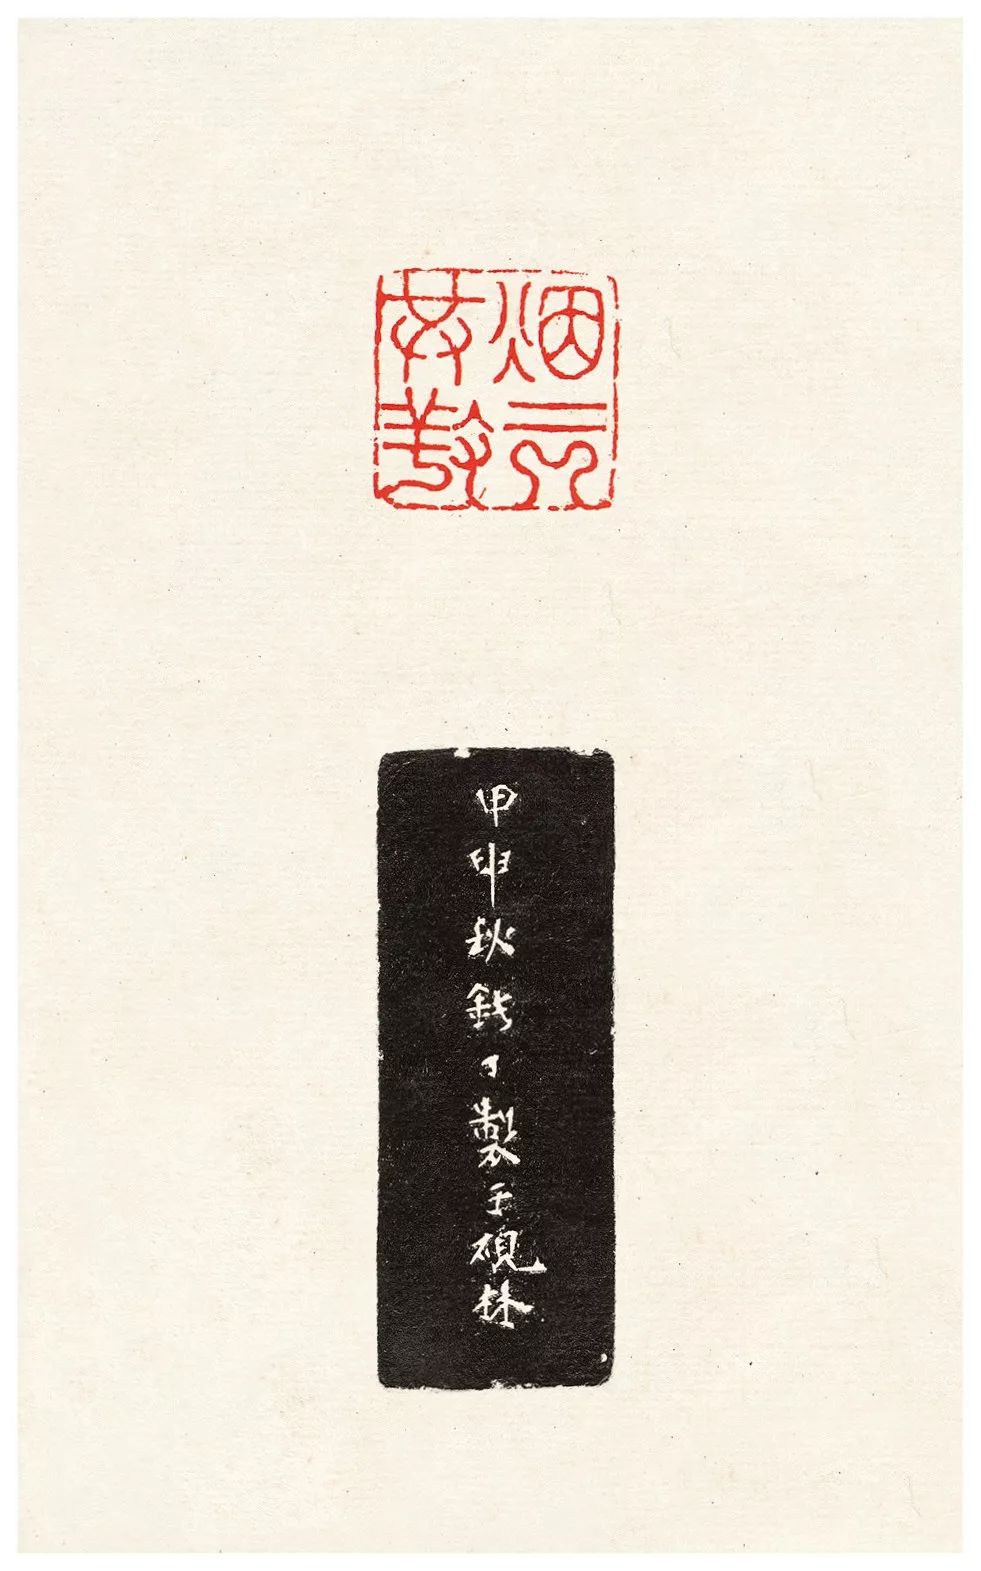 烟云
供养
甲申秋鈍丁製于硯林